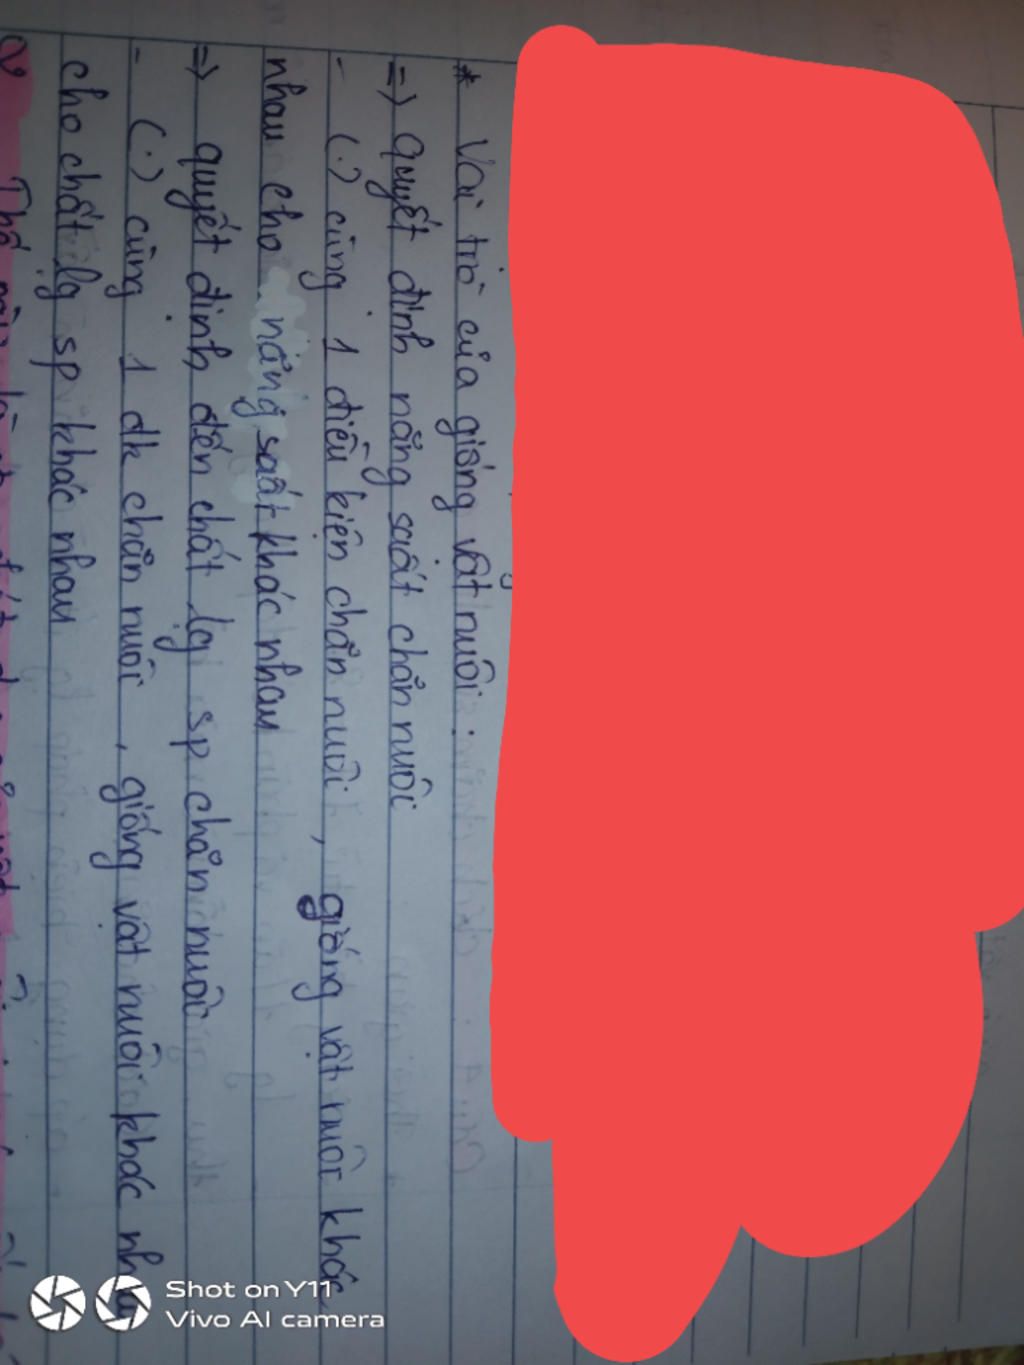 * Vai trò của giống vật nuôi :
=> quyết định năng suất chăn nuôi
- (.) cùng 1 điều kiện chăn nuôi , giống vật nuôi khác
nhau cho năng suất khác nhau
=> quyết định đến chất lg sp chăn nuôi
- (.) cùng 1 đk chăn nuôi , giống vật nuôi khác nhau
cho chất lg sp khác nhau
Shot on Y11
Vivo AI camera